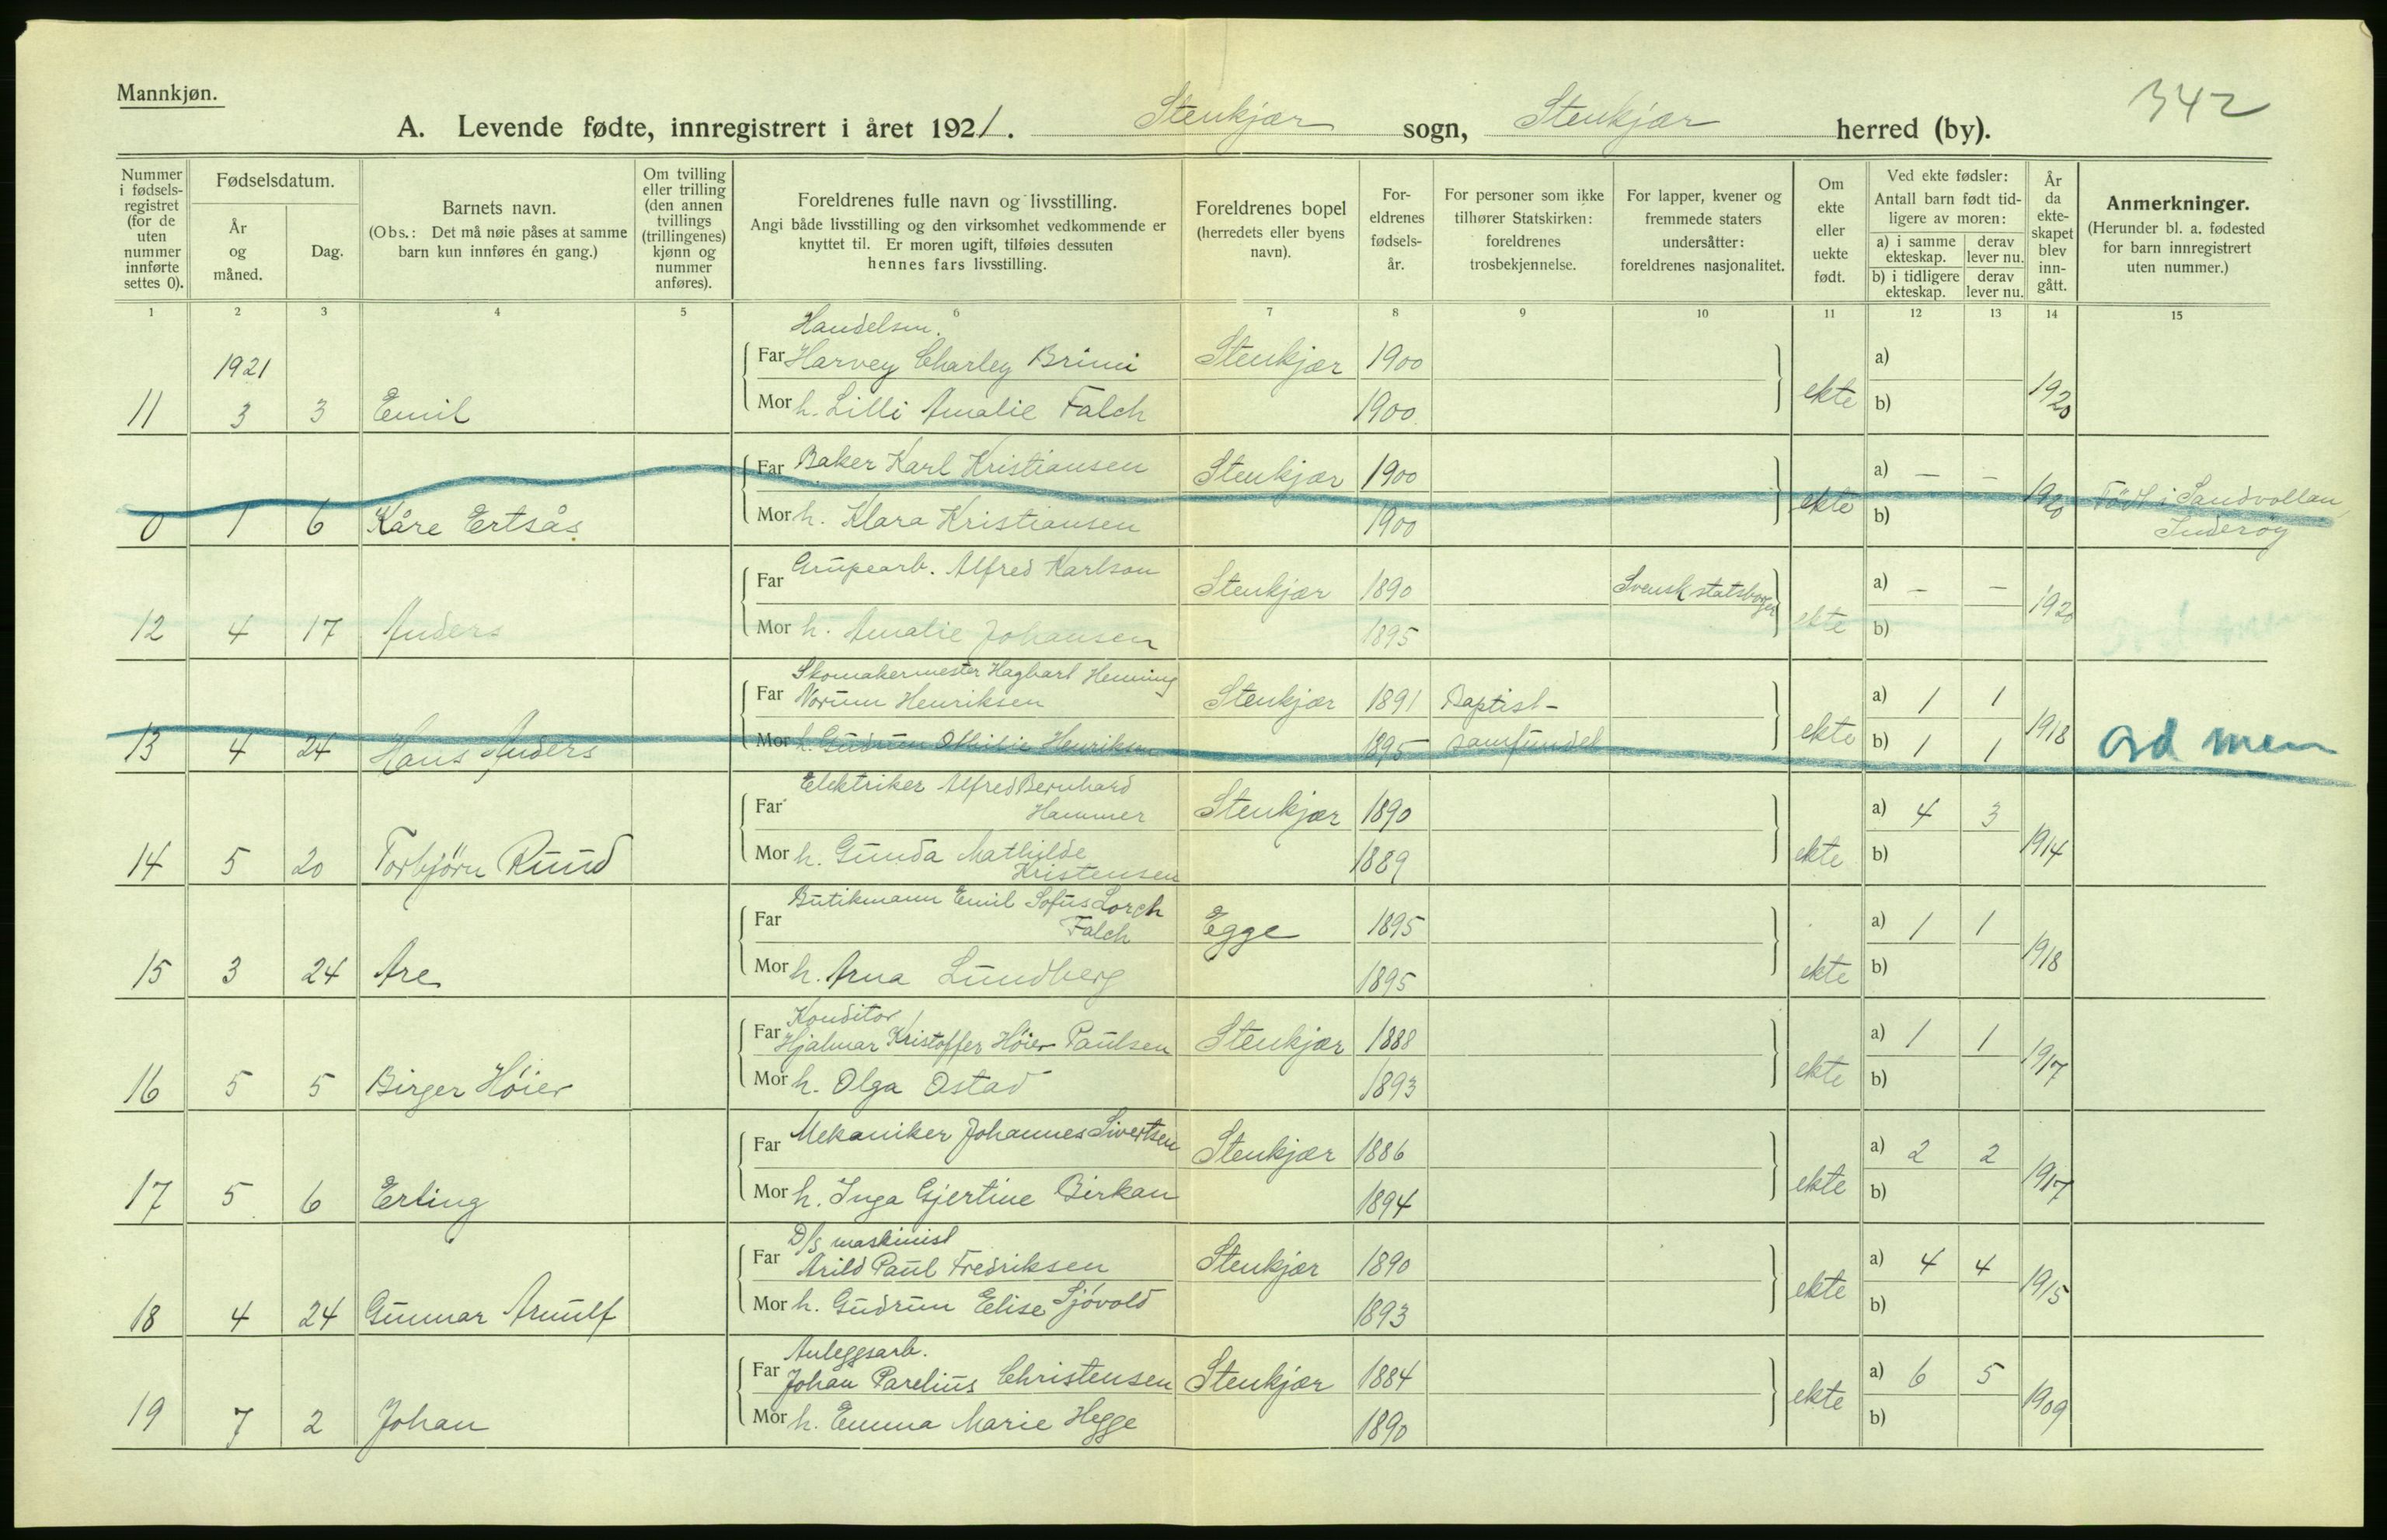 Mannkjøn.
342
A. Levende fødte, innregistrert i året 1921. Stenkjær sogn, Stenkjær herred (by).
Nummer i fødsels-registret (for de uten nummer innførte settes 0).
Fødselsdatum.
År og måned.
Dag.
Barnets navn.
(Obs.: Det må nøie påses at samme barn kun innføres én gang.)
Om tvilling eller trilling (den annen tvillings (trillingenes) kjønn og nummer anføres).
Foreldrenes fulle navn og livsstilling.
Angi både livsstilling og den virksomhet vedkommende er knyttet til. Er moren ugift, tilføies dessuten hennes fars livsstilling.
Foreldrenes bopel (herredets eller byens navn).
For-eldrenes fødsels-år.
For personer som ikke tilhører Statskirken: foreldrenes trosbekjennelse.
For lapper, kvener og fremmede staters undersåtter: foreldrenes nasjonalitet.
Om ekte eller uekte født.
Ved ekte fødsler:
Antall barn født tid-ligere av moren:
a) i samme ekteskap. derav lever nu.
b) i tidligere ekteskap. derav lever nu.
År da ekte-skapet blev inn-gått.
Anmerkninger.
(Herunder bl. a. fødested for barn innregistrert uten nummer.)
1 2 3 4 5 6 7 8 9 10 11 12 13 14 15
Handelsm.
1921 Far Harvey Charley Brimi Stenkjær 1900 a)
11 3 3 Emil Mor h. Lilli Amalie Falch 1900 ekte b) 1920
Far Baker Karl Kristiansen Stenkjær 1900 a) — —
0 1 6 Kåre Ertsås Mor h. Klara Kristiansen 1900 ekte b) 1920 Født i Sandvollan, Inderøy
Far Grupearb. Alfred Karlson Stenkjær 1890 Svensk statsborger a) — —
12 4 17 Anders Mor h. Amalie Johansen 1895 ekte b) 1920
Skomakermester Hagbart Henning
Far Norum Henriksen Stenkjær 1891 Baptist- a) 1 1
13 4 24 Hans Anders Mor h. Gudrun Othilie Henriksen 1895 samfundet ekte b) 1 1 1918 asd men
Elektriker Alfred Bernhard
Far Hammer Stenkjær 1890 a) 4 3
14 5 20 Torbjørn Ruud Mor h. Gunda Mathilde Kristensen 1889 ekte b) 1914
Butikmann Emil Sofus Lorch
Far Falch Egge 1895 a) 1 1
15 3 24 Are Mor h. Arna Lundberg 1895 ekte b) 1918
Konditor
Far Hjalmar Kristoffer Høier Paulsen Stenkjær 1888 a) 1 1
16 5 5 Birger Høier Mor h. Olga Ostad 1893 ekte b) 1917
Far Mekaniker Johannes Sivertsen Stenkjær 1886 a) 2 2
17 5 6 Erling Mor h. Inga Gjertine Birkan 1894 ekte b) 1917
D/S maskinist
Far Arild Paul Fredriksen Stenkjær 1890 a) 4 4
18 4 24 Gunnar Arnulf Mor h. Gudrun Elise Sjøvold 1893 ekte b) 1915
Anleggsarb.
Far Johan Parelius Christensen Stenkjær 1884 a) 6 5
19 7 2 Johan Mor h. Emma Marie Hegge 1890 ekte b) 1909